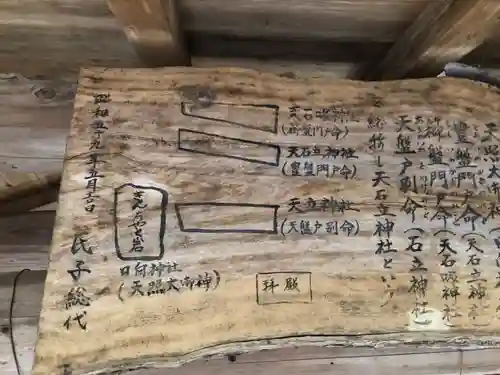 豊磐門戸命(天石立神社)
櫛磐門戸命(天石吸神社)
天磐戸別命(石立神社)
を総称し天石立神社という
天石吸神社
(櫛磐門戸命)
天石立神社
(豊磐門戸命)
天立神社
(天磐戸別命)
拝殿
日向神社
(天照大御神)
昭和五九年五月吉日
氏子総代